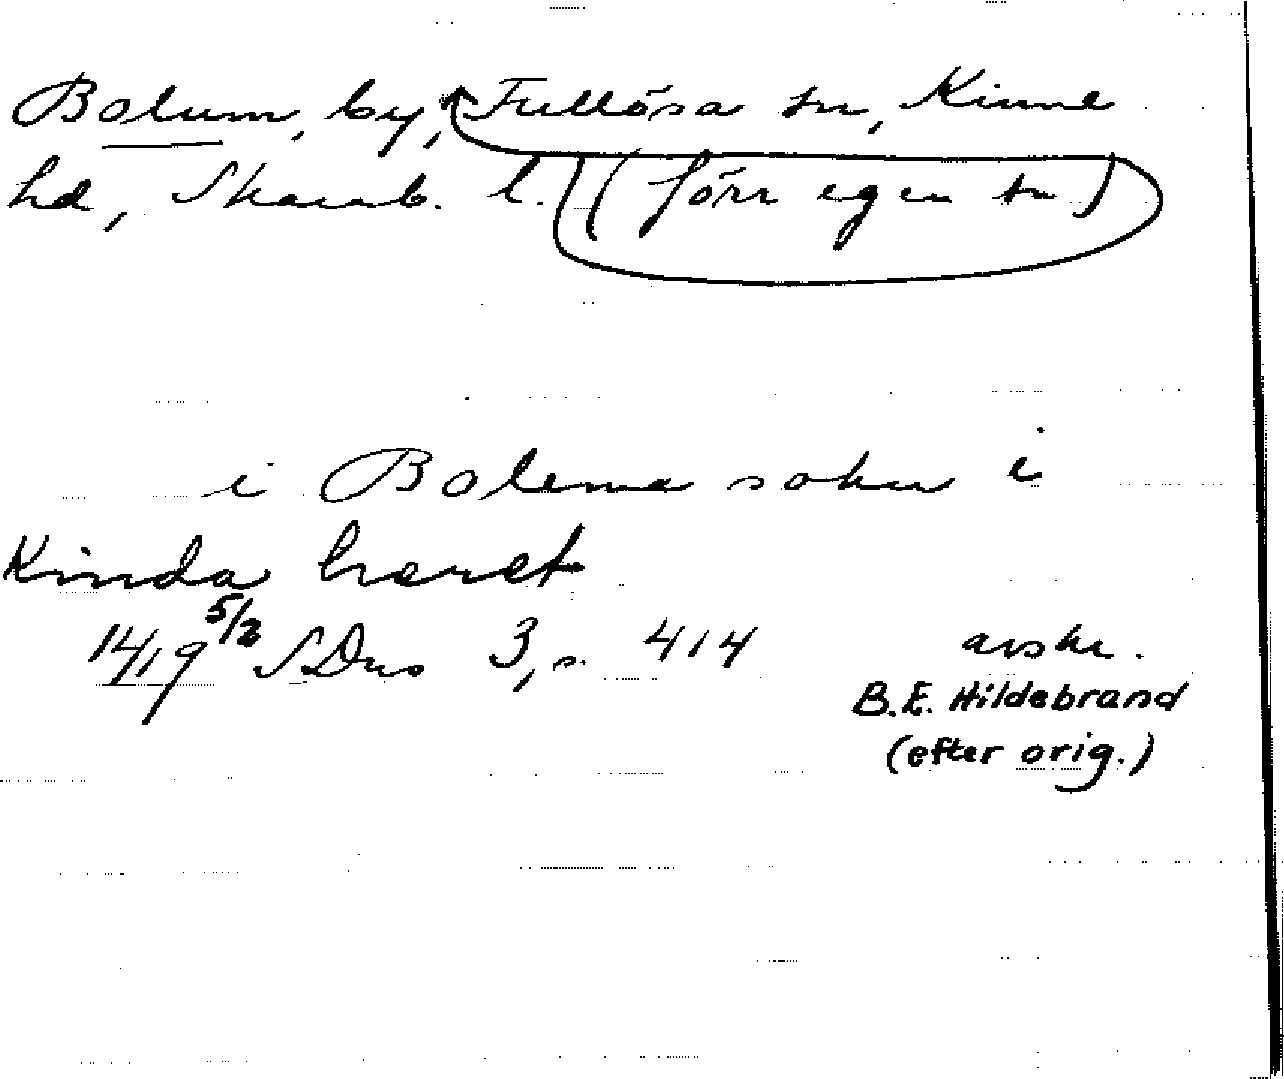 Bolum, by, Fullösa sn, Kinne
hd, Skarab. l. (förr egen sn)
i Bolema sokn i
Kinda hæret
1419 5/2 SDns 3, s. 414 avskr.
B.E. Hildebrand
(efter orig.)